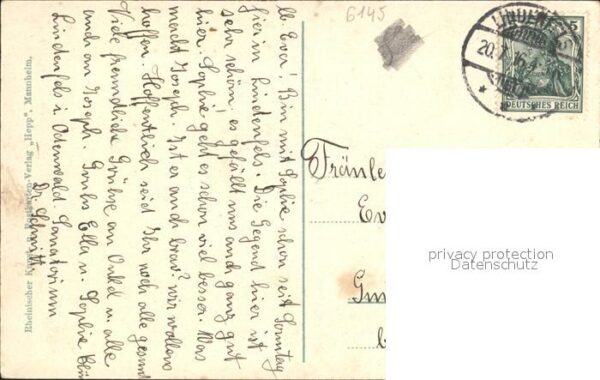 6145
LINDENFELS
20.7.
5
DEUTSCHES REICH
lb. Eva! Bin mit Sophie schon seit Sonntag
hier in Lindenfels. Die Gegend hier ist
sehr schön, es gefällt uns auch ganz gut
hier. Sophie geht es schon viel besser. Was
macht Joseph. Ist er auch brav? wir wollens
hoffen. Hoffentlich seid Ihr noch alle gesund
Viele freundliche Grüsse an Onkel u. alle
auch an Joseph. Gruß Ella u. Sophie
Lindenfels i. Odenwald Sanatorium
Dr. Schmitt
Rheinischer Kunst- & Postkarten-Verlag „Hepp", Mannheim.
Fräule
Ev
Gm
b
privacy protection
Datenschutz